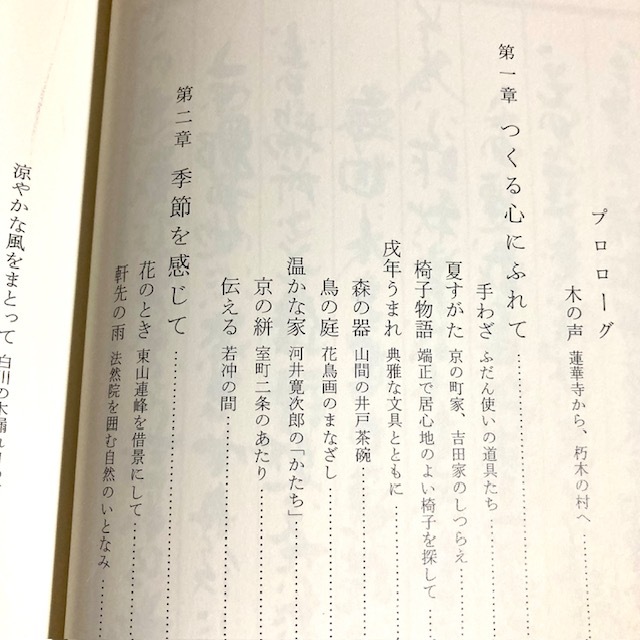 プロローグ
木の声 蓮華寺から、朽木の村へ
第一章 つくる心にふれて
手わざ ふだん使いの道具たち
夏すがた 京の町家、吉田家のしつらえ
椅子物語 端正で居心地のよい椅子を探して
戌年うまれ 典雅な文具とともに
森の器 山間の井戸茶碗
鳥の庭 花鳥画のまなざし
温かな家 河井寛次郎の「かたち」
京の絣 室町二条のあたり
伝える 若冲の間
第二章 季節を感じて
花のとき 東山連峰を借景にして
軒先の雨 法然院を囲む自然のいとなみ
涼やかな風をまとって 白川の木漏れ日の